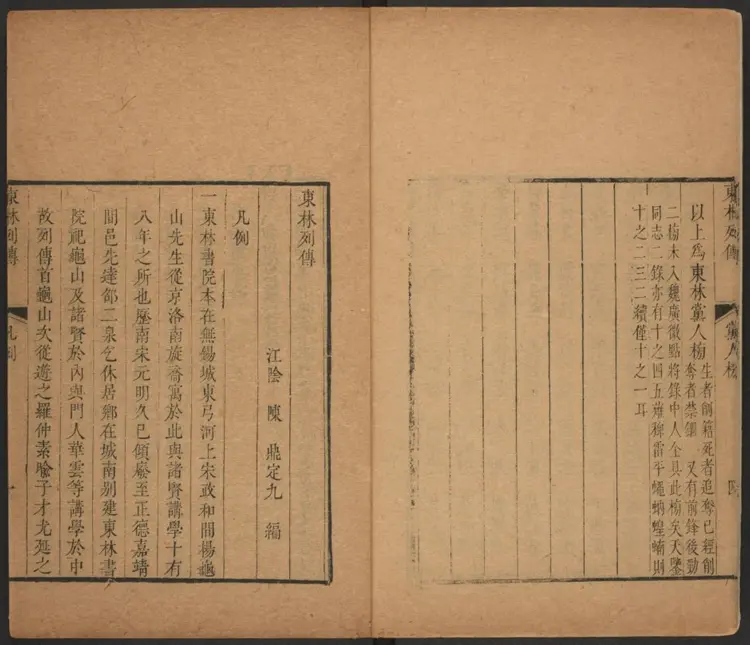 東林列傳 黨人榜 四
以上爲東林黨人榜 生者削籍死者追奪已經削
奪者禁錮 又有前鋒後勁
二榜未入魏廣微點將錄中人全具此榜矣天鑒
同志二錄亦有十之四五薙稗雷平蠅蚋蝗蝻則
十之二三二續僅十之一耳
東林列傳
江陰 陳 鼎定九 編
凡例
一東林書院本在無錫城東弓河上宋政和間楊龜
山先生從京洛南旋僑寓於此與諸賢講學十有
八年之所也歷南宋元明久已傾廢至正德嘉靖
間邑先達邵二泉乞休居鄉在城南别建東林書
院祀龜山及諸賢於內與門人華雲等講學於中
故列傳首龜山次從遊之羅仲素喻子才尤延之
東林列傳 凡例 一